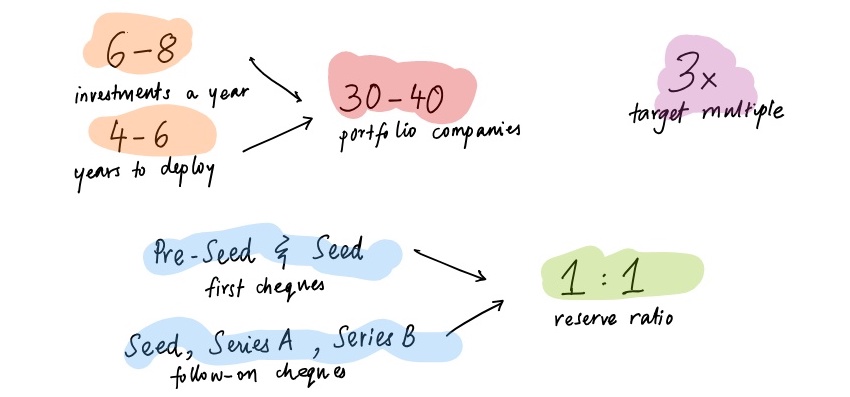 6-8
investments a year
4-6
years to deploy
30-40
portfolio companies
3x
target multiple
Pre-Seed & Seed
first cheques
Seed, Series A, Series B
follow-on cheques
1:1
reserve ratio